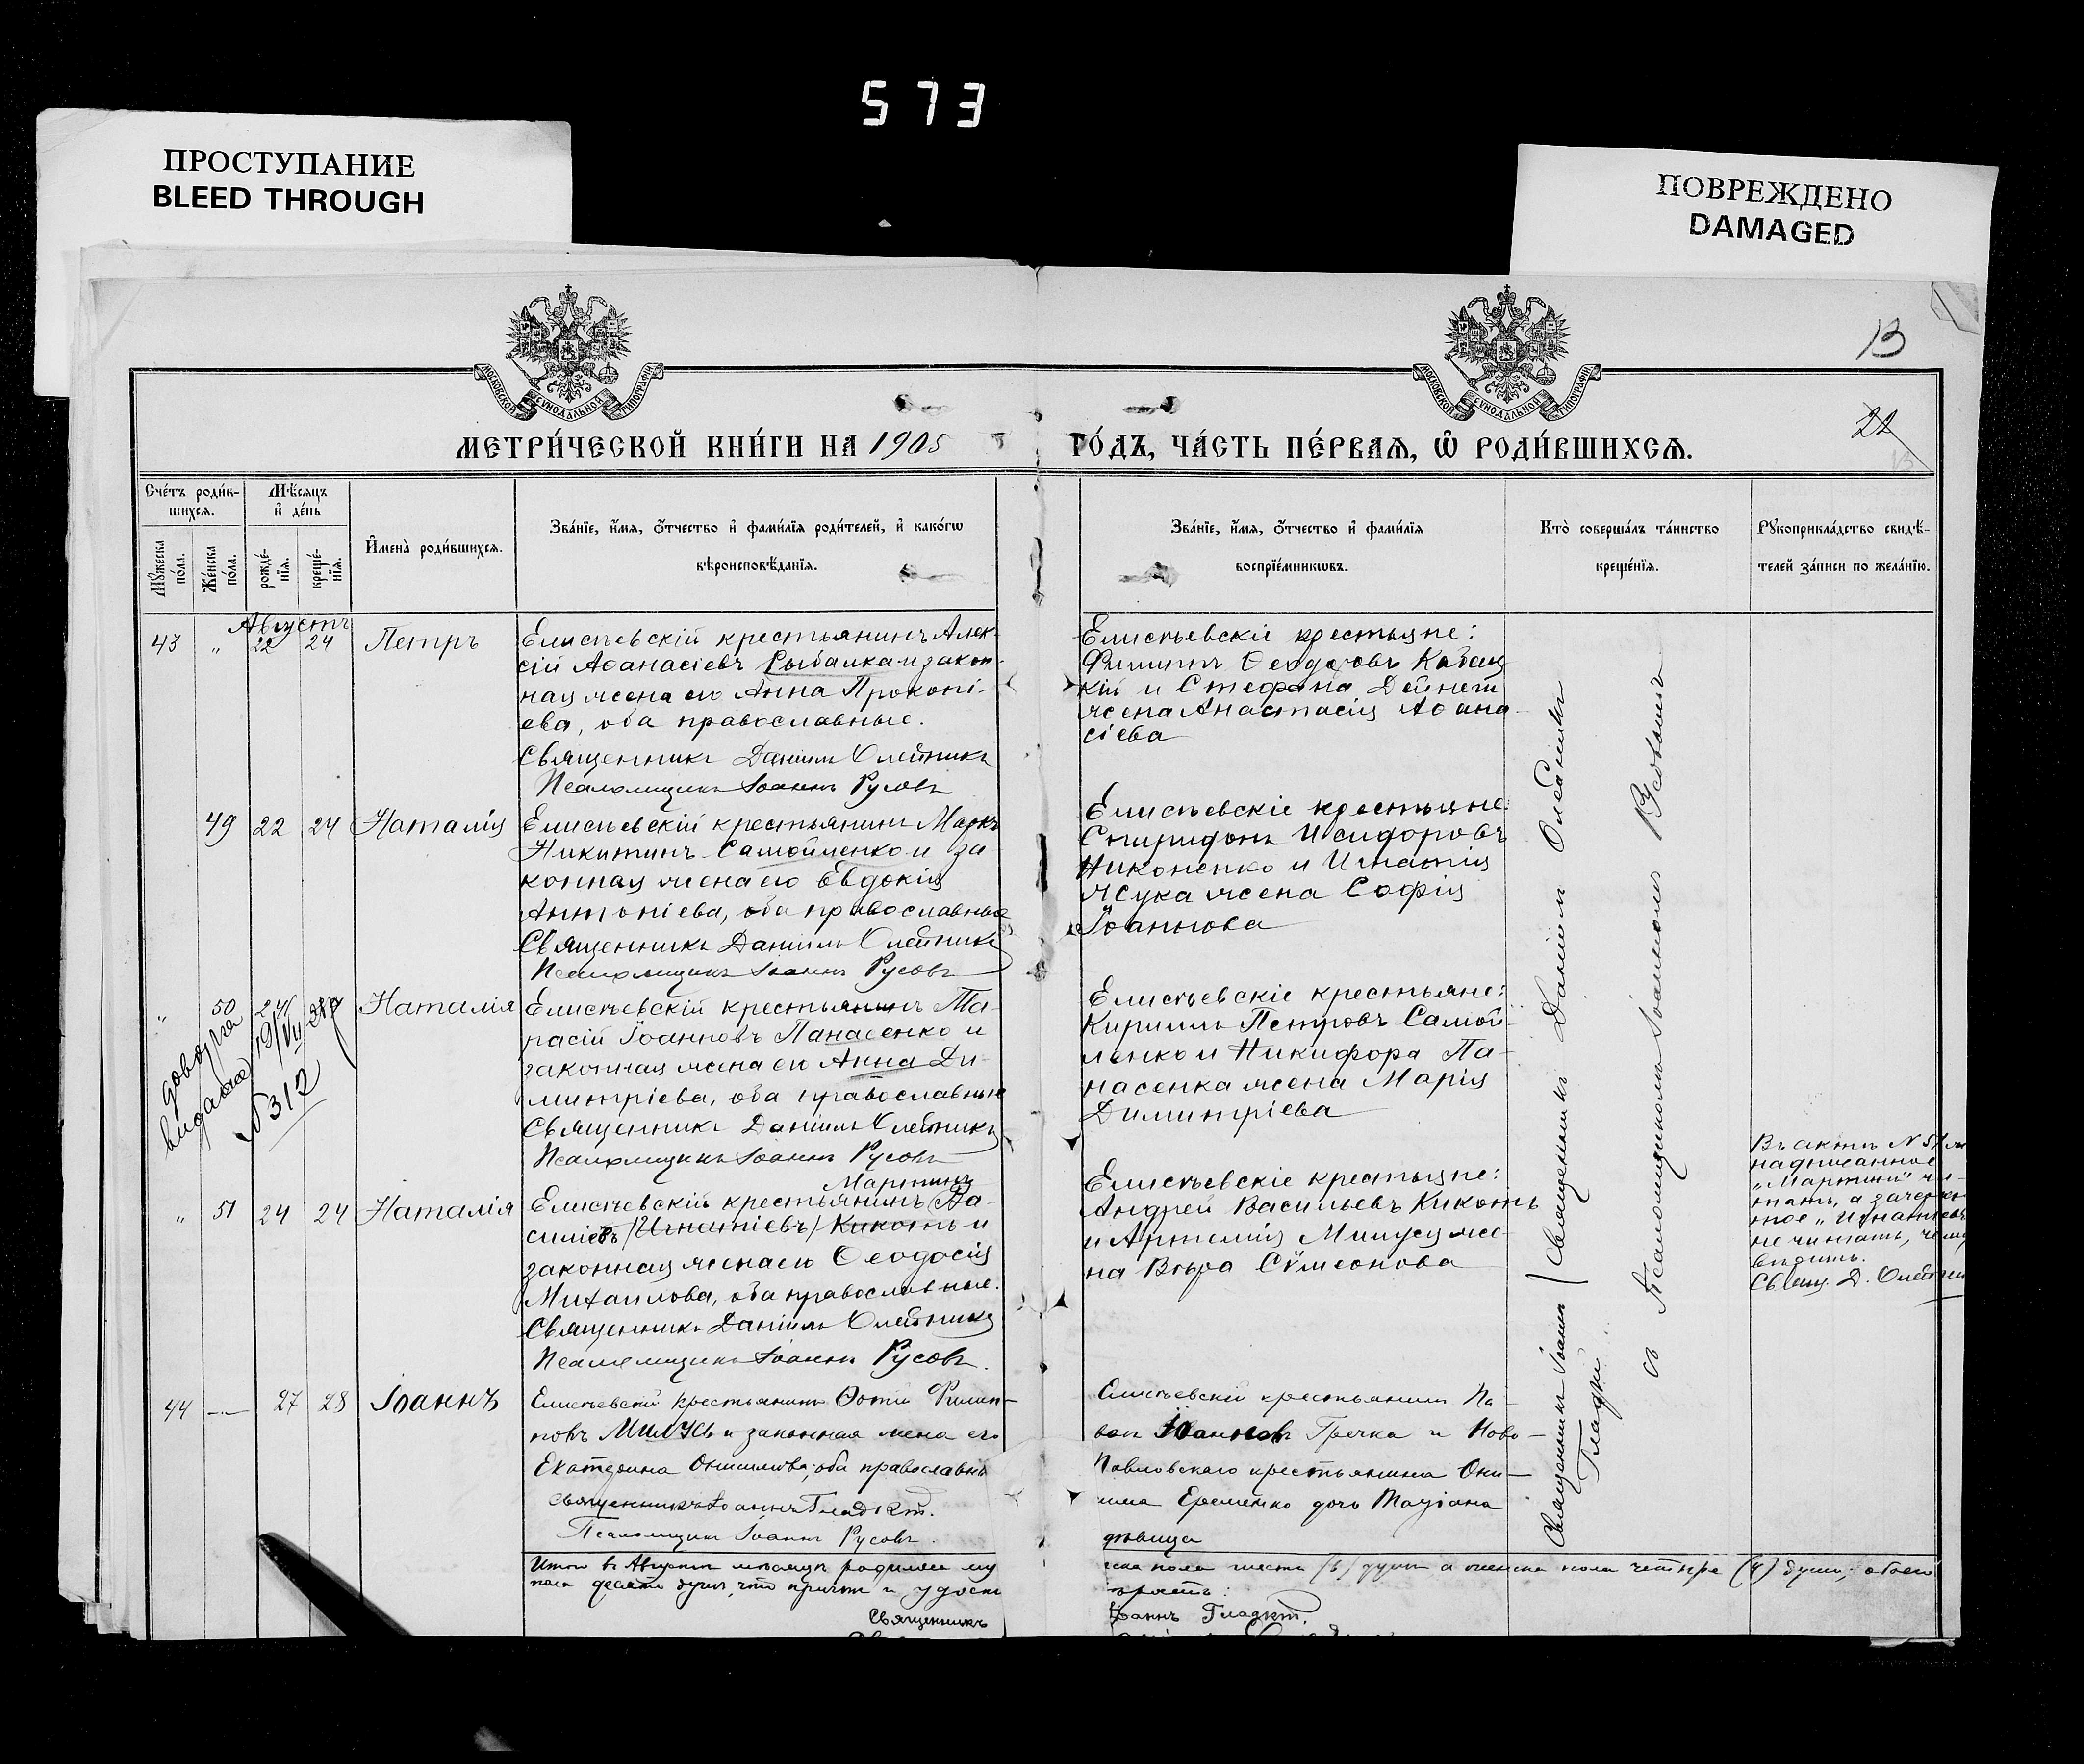 573
ПРОСТУПАНИЕ
BLEED THROUGH
ПОВРЕЖДЕНО
DAMAGED
МОСКОВСКОЙ СѴНОДАЛЬНОЙ ТИПОГРАФІИ
МОСКОВСКОЙ СѴНОДАЛЬНОЙ ТИПОГРАФІИ
13
22
МЕТРИ́ЧЕСКОЙ КНИ́ГИ НА 1905
ГО́ДЪ, ЧА́СТЬ ПЕ́РВАѦ, Ѡ҆ РОДИ́ВШИХСѦ.
Сче́тъ роди́в-
шихся.
Мѣ́сяцъ
и҆ де́нь
Мꙋ́жеска
по́ла.
Же́нска
по́ла.
рожде́-
нїя.
креще́-
нїя.
И҆мена̀ роди́вшихся.
Зва́нїе, и҆́мя, ѻ҆́тчество и҆ фами́лїя роди́телей, и҆ како́гѡ
вѣроисповѣ́данїя.
Зва́нїе, и҆́мя, ѻ҆́тчество и҆ фами́лїя
воспрїе́мникѡвъ.
Кто̀ соверша́лъ та́инство
креще́нїя.
Рꙋкоприкла́дство свидѣ́-
телей за́писи по жела́нїю.
Августъ
43 " 22 24 Петръ
Елисѣевскій крестьянинъ Алек-
сій Аѳанасіевъ Рыбалка и закон-
ная жена его Анна Прокопі-
ева, оба православные.
Священникъ Даніилъ Олейникъ
Псаломщикъ Іоаннъ Русовъ
Елисѣевскіе крестьяне:
Филиппъ Ѳеодоровъ Кабац-
кій и Стефана Дейнеги
жена Анастасія Аѳана-
сіева
49 22 24 Наталія
Елисѣевскій крестьянинъ Маркъ
Никитинъ Самойленко и за
конная жена его Евдокія
Антоніева, оба православные
Священникъ Даніилъ Олейникъ
Псаломщикъ Іоаннъ Русовъ
Елисѣевскіе крестьяне:
Спиридонъ Исидоровъ
Никоненко и Игнатія
Жука жена Софія
Іоаннова
" 50 24 24 Наталія
видана
19/VII
№312
Елисѣевскій крестьянинъ Та-
расій Іоанновъ Панасенко и
законная жена его Анна Ди-
митріева, оба православные
Священникъ Даніилъ Олейникъ
Псаломщикъ Іоаннъ Русовъ
Елисѣевскіе крестьяне:
Кириллъ Петровъ Самой-
ленко и Никифора Па-
насенка жена Марія
Димитріева
" 51 24 24 Наталія
Мартинъ
Елисѣевскій крестьянинъ Ва-
силіевъ (Игнатіевъ) Кикоть и
законная жена его Ѳеодосія
Михаилова, оба православные.
Священникъ Даніилъ Олейникъ
Псаломщикъ Іоаннъ Русовъ.
Елисѣевскіе крестьяне:
Андрей Васильевъ Кикоть
и Артемія Милуся же-
на Вѣра Сѵмеонова
Въ актѣ N 51
надписанное
„Мартинъ" чи-
тать, а зачеркну
тое „Игнатіевъ
не читать,
вѣрить.
Свящ. Д. Олейник
44 — 27 28 Іоаннъ
Елисѣевскій крестьянинъ Фотій Филип-
повъ Милусь и законная жена его
Екатерина Онисимова, оба православны
Священникъ Іоаннъ Гладкій.
Псаломщикъ Іоаннъ Русовъ.
Елисѣевскій крестьянинъ Па-
велъ Іоанновъ Гречка и Ново-
Павловскаго крестьянина Они-
сима Еременко дочь Татіана
дѣвица
Священникъ Даніилъ Олейникъ
съ Псаломщикомъ Іоанномъ Русовымъ
Священникъ Іоаннъ
Гладкій.
Итого въ Августѣ мѣсяцѣ родилось му
жска пола шесть (6) душъ а женска пола четыре (4) души, обоего
пола десять душъ, что причтъ и удосто
вѣряетъ:
Священникъ
Іоаннъ Гладкій.